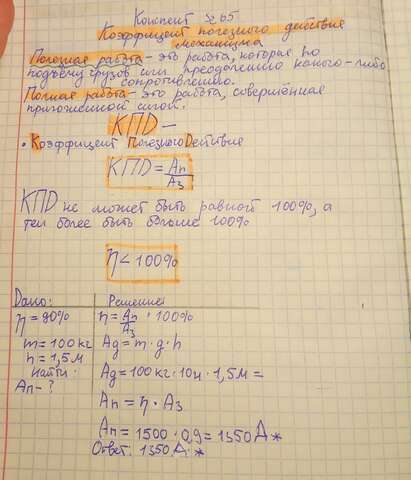 Конспект §65
Коэффициент полезного действия
механизма
Полезная работа - это работа, которая по
подъёму грузов или преодолению какого-либо
сопротивлению.
Полная работа - это работа, совершённая
приложенной силой.
КПД —
• Коэффициент Полезного Действия
КПД = Aп/Aз
КПД не может быть равной 100%, а
тем более быть больше 100%
η < 100%
Дано: Решение
η = 90% η = Aп/Aз · 100%
m = 100 кг Aд = m · g · h
h = 1,5 м
Найти: Aд = 100 кг · 10н · 1,5м =
Aп - ?
Aп = η · Aз
Aп = 1500 · 0,9 = 1350 Дж
Ответ: 1350 Дж.